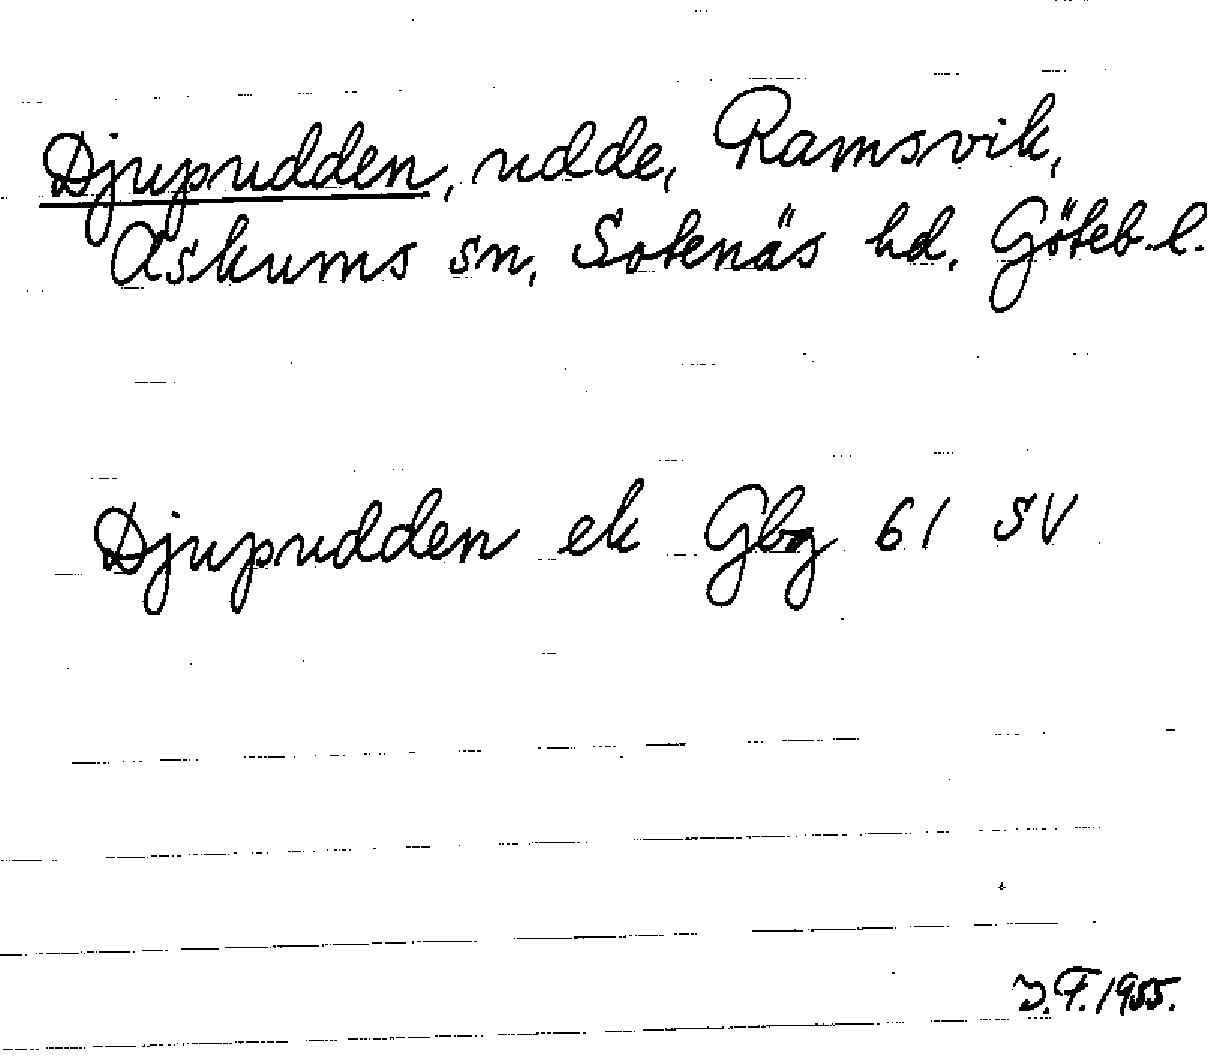 Djupudden, udde, Ramsvik,
Askums sn, Sotenäs hd. Göteb. l.
Djupudden ek Gbg 61 SV
J.F. 1955.